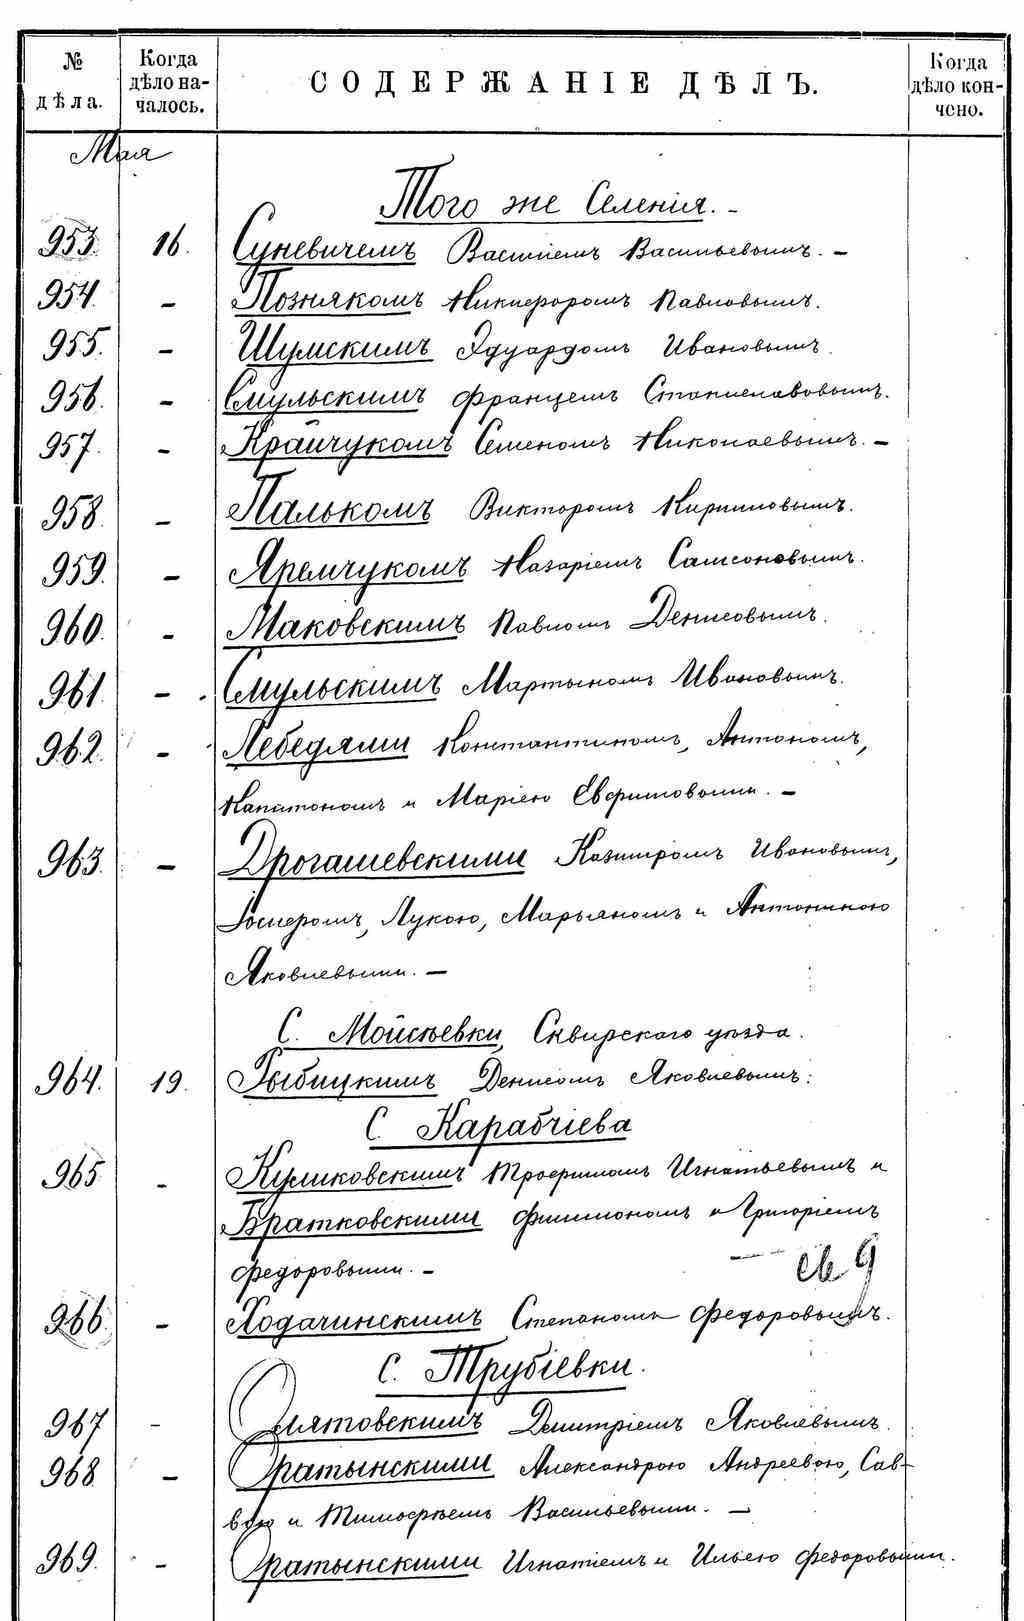 № дѣла.
Когда дѣло на-чалось.
СОДЕРЖАНІЕ ДѢЛЪ.
Когда дѣло кон-чено.
Мая
Того же Селенія. -
953. 16. Суневичемъ Василіемъ Васильевымъ. -
954. - Позникомъ Никифоромъ Павловымъ.
955. - Шумскимъ Эдуардомъ Ивановымъ.
956. - Смульскимъ Францемъ Станиславовымъ.
957. - Крайчукомъ Семеномъ Николаевымъ. -
958. - Палькомъ Викторомъ Кириловымъ.
959. - Яремчукомъ Назаріемъ Самсоновымъ.
960. - Маковскимъ Павломъ Денисовымъ.
961. - Смульскимъ Мартыномъ Ивановымъ.
962. - Лебедями Константиномъ, Антономъ,
Капитономъ и Маріею Евфимовыми. -
963. - Дрогашевскими Казиміромъ Ивановымъ,
Іосифомъ, Лукою, Марьяномъ и Антониною
Яковлевыми. -
С. Мойсѣевки, Сквирскаго уѣзда.
964. 19. Рыбицкимъ Денисомъ Яковлевымъ.
С. Карабчіева
965. - Куликовскимъ Трофимомъ Игнатьевымъ и
Братковскими Филимономъ и Григоріемъ
Федоровыми. -
966. - Ходачинскимъ Степаномъ Федоровымъ.
С. Трубіевки.
967 - Олятовскимъ Дмитріемъ Яковлевымъ.
968 - Оратынскими Александрою Андреевою, Сав-
вою и Тимофѣемъ Васильевыми. -
969. - Оратынскими Игнатіемъ и Ильею Федоровыми.